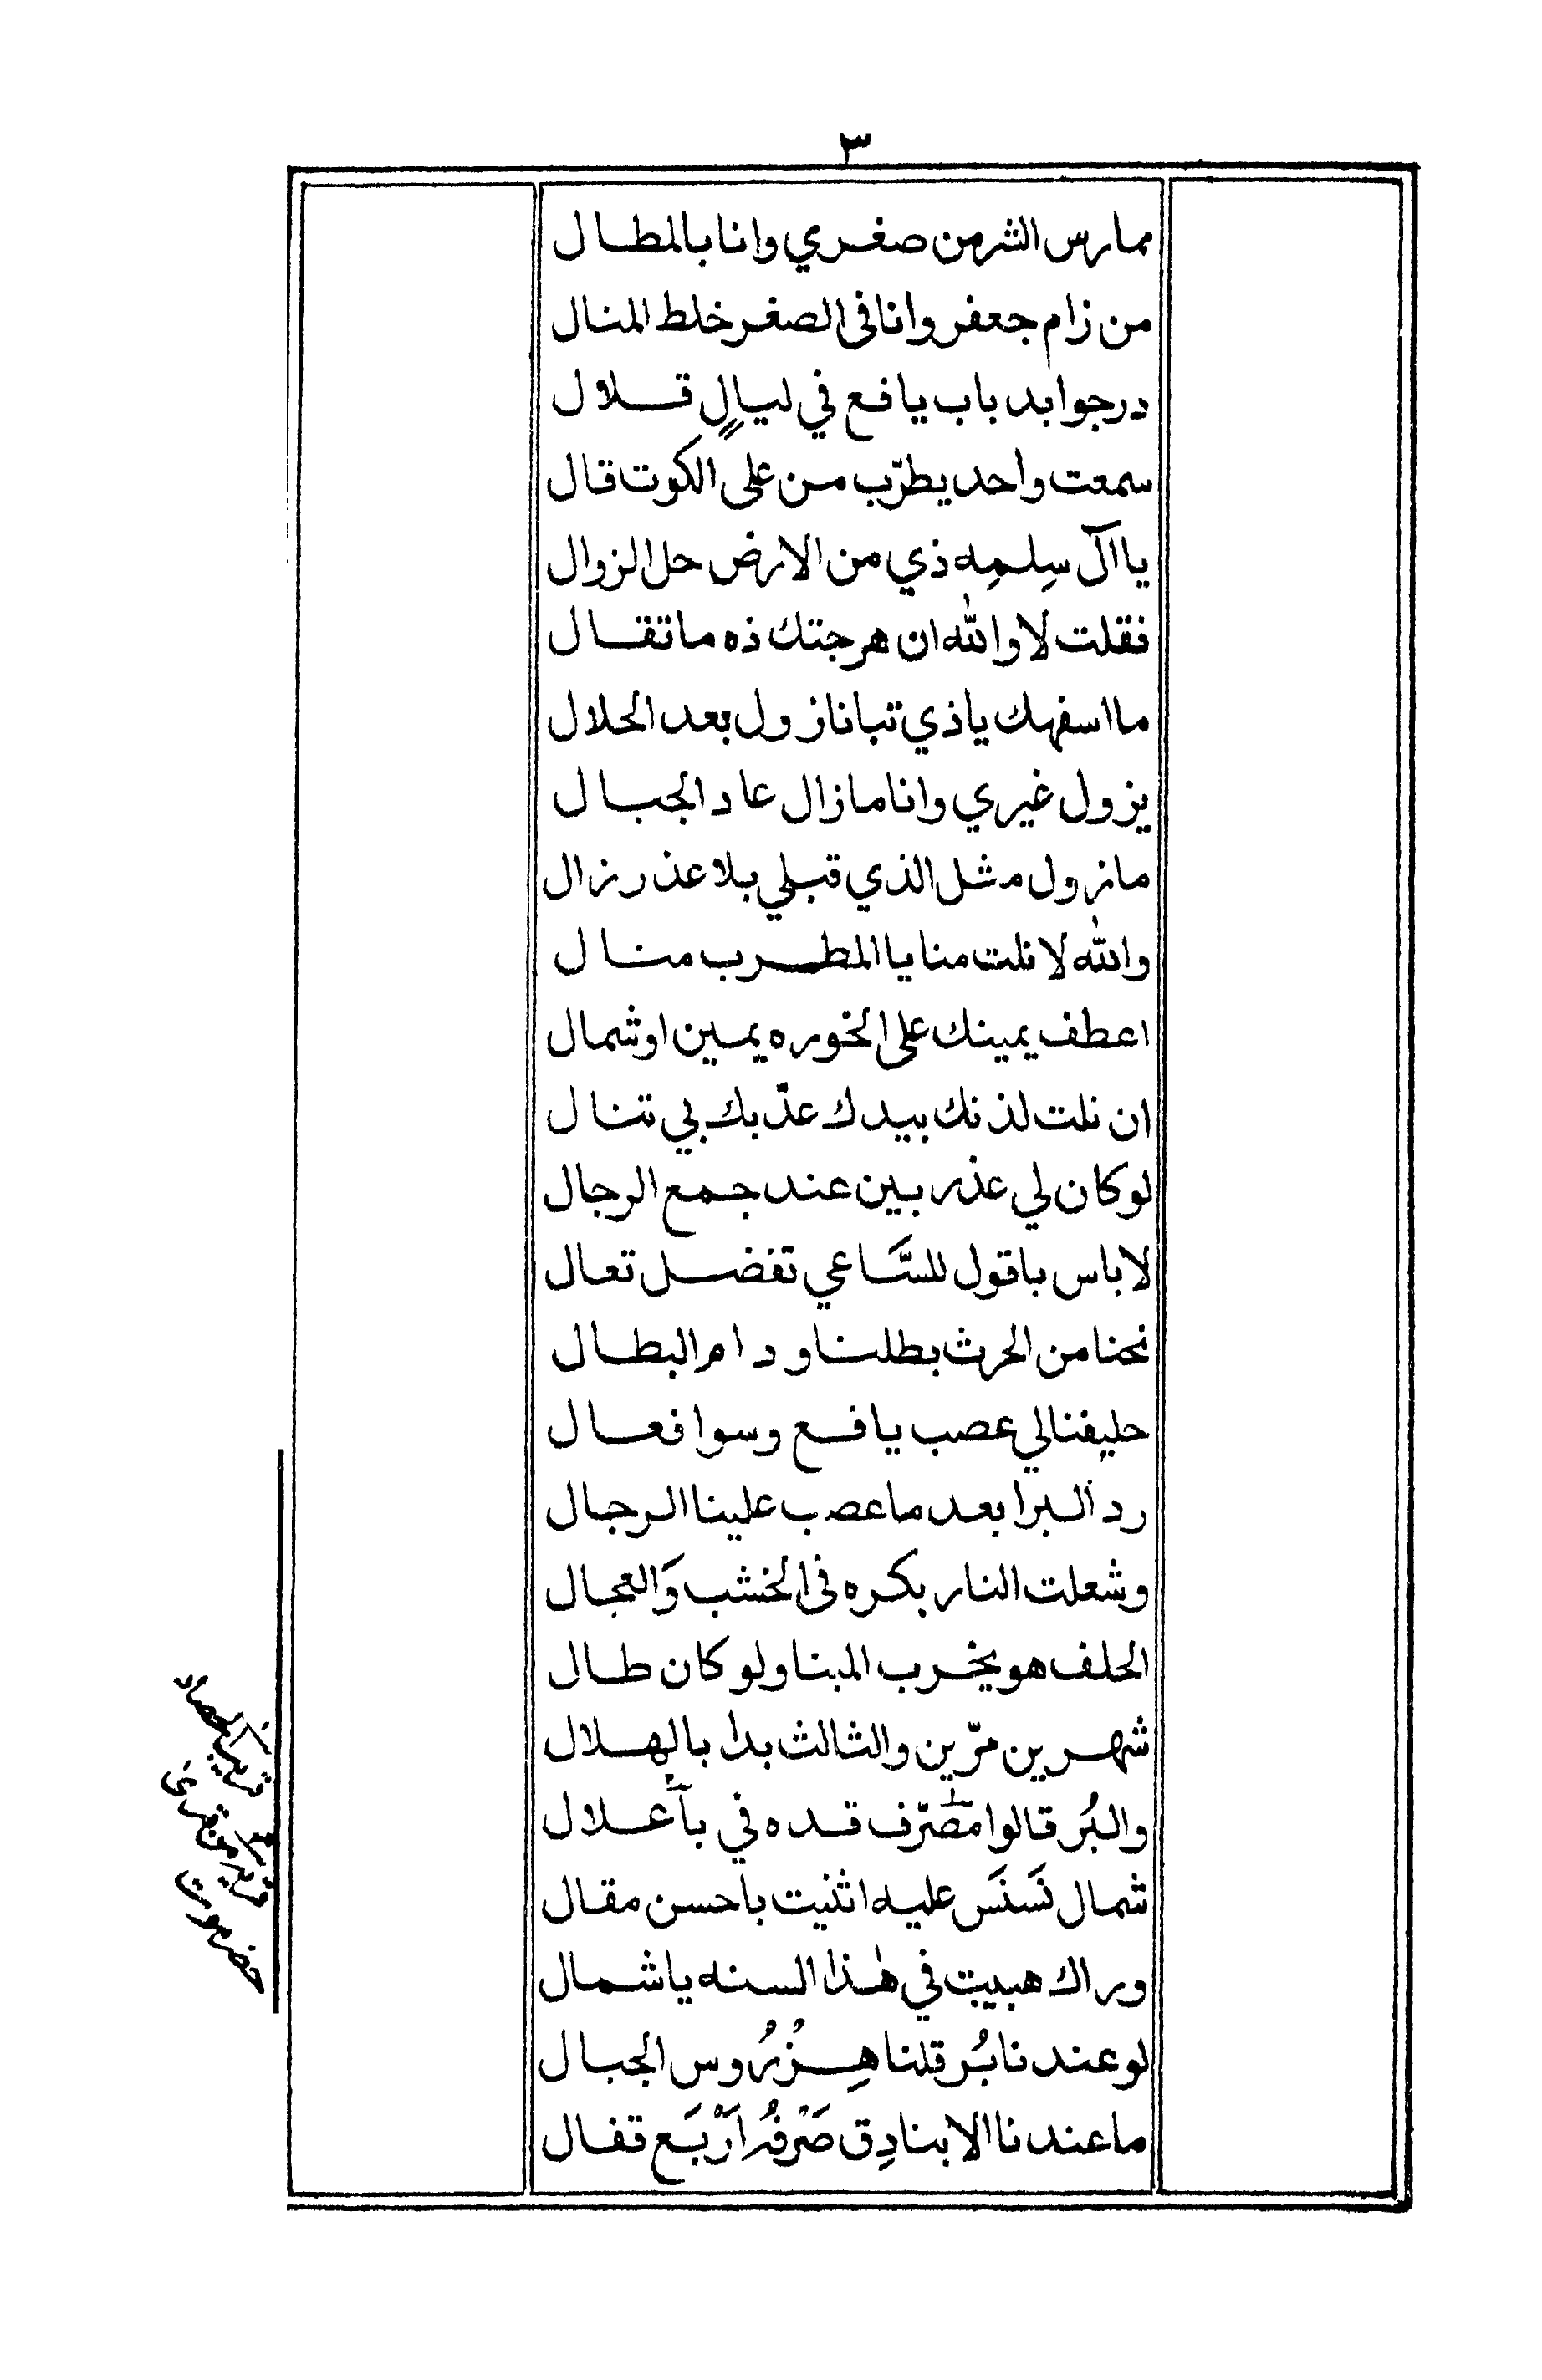 ٣
ممارس الشر من صغري وانا بالمطال
من زام جعفر وانا في الصغر خلط المنال
درجوا بد باب يافع في ليالٍ قلال
سمعت واحد يطرّب من على الكوت قال
يا آل سِلمِه ذي من الارض حل الزوال
فقلت لا والله ان هرجتك ذه ما تقال
ما اسفهك يا ذي تبانا نزول بعد الحلال
يزول غيري وانا ما زال عاد الجبال
ما نزول مثل الذي قبلي بلا عذر زال
والله لا نلت منا يا المطرب منال
اعطف يمينك على الخوره يمين او شمال
ان نلت لذنك بيدك عذّبك بي تنال
لو كان لي عذر بين عند جمع الرجال
لا باس باقول للسَّاعي تفضل تعال
نحنا من الحرث بطلنا ودام البطال
حليفنا لي عصب يافع وسوا فعال
رد البرا بعد ما عصب علينا الرجال
وشعلت النار بكره في الخشب وَالعجال
الحلف هو يخرب المبنا ولو كان طال
شهرين مرّين والثالث بدا بالهلال
والبُر قالوا مصَرّف قده في بآعلال
شمال نَسنَس عليه اثنيت باحسن مقال
وراك هبيت في هٰذا السنه يا شمال
لو عندنا بُر قلنا هِزُ رُوس الجبال
ما عندنا الا بنادِق صَرْفُه ارْبَع قفال
حضرموت